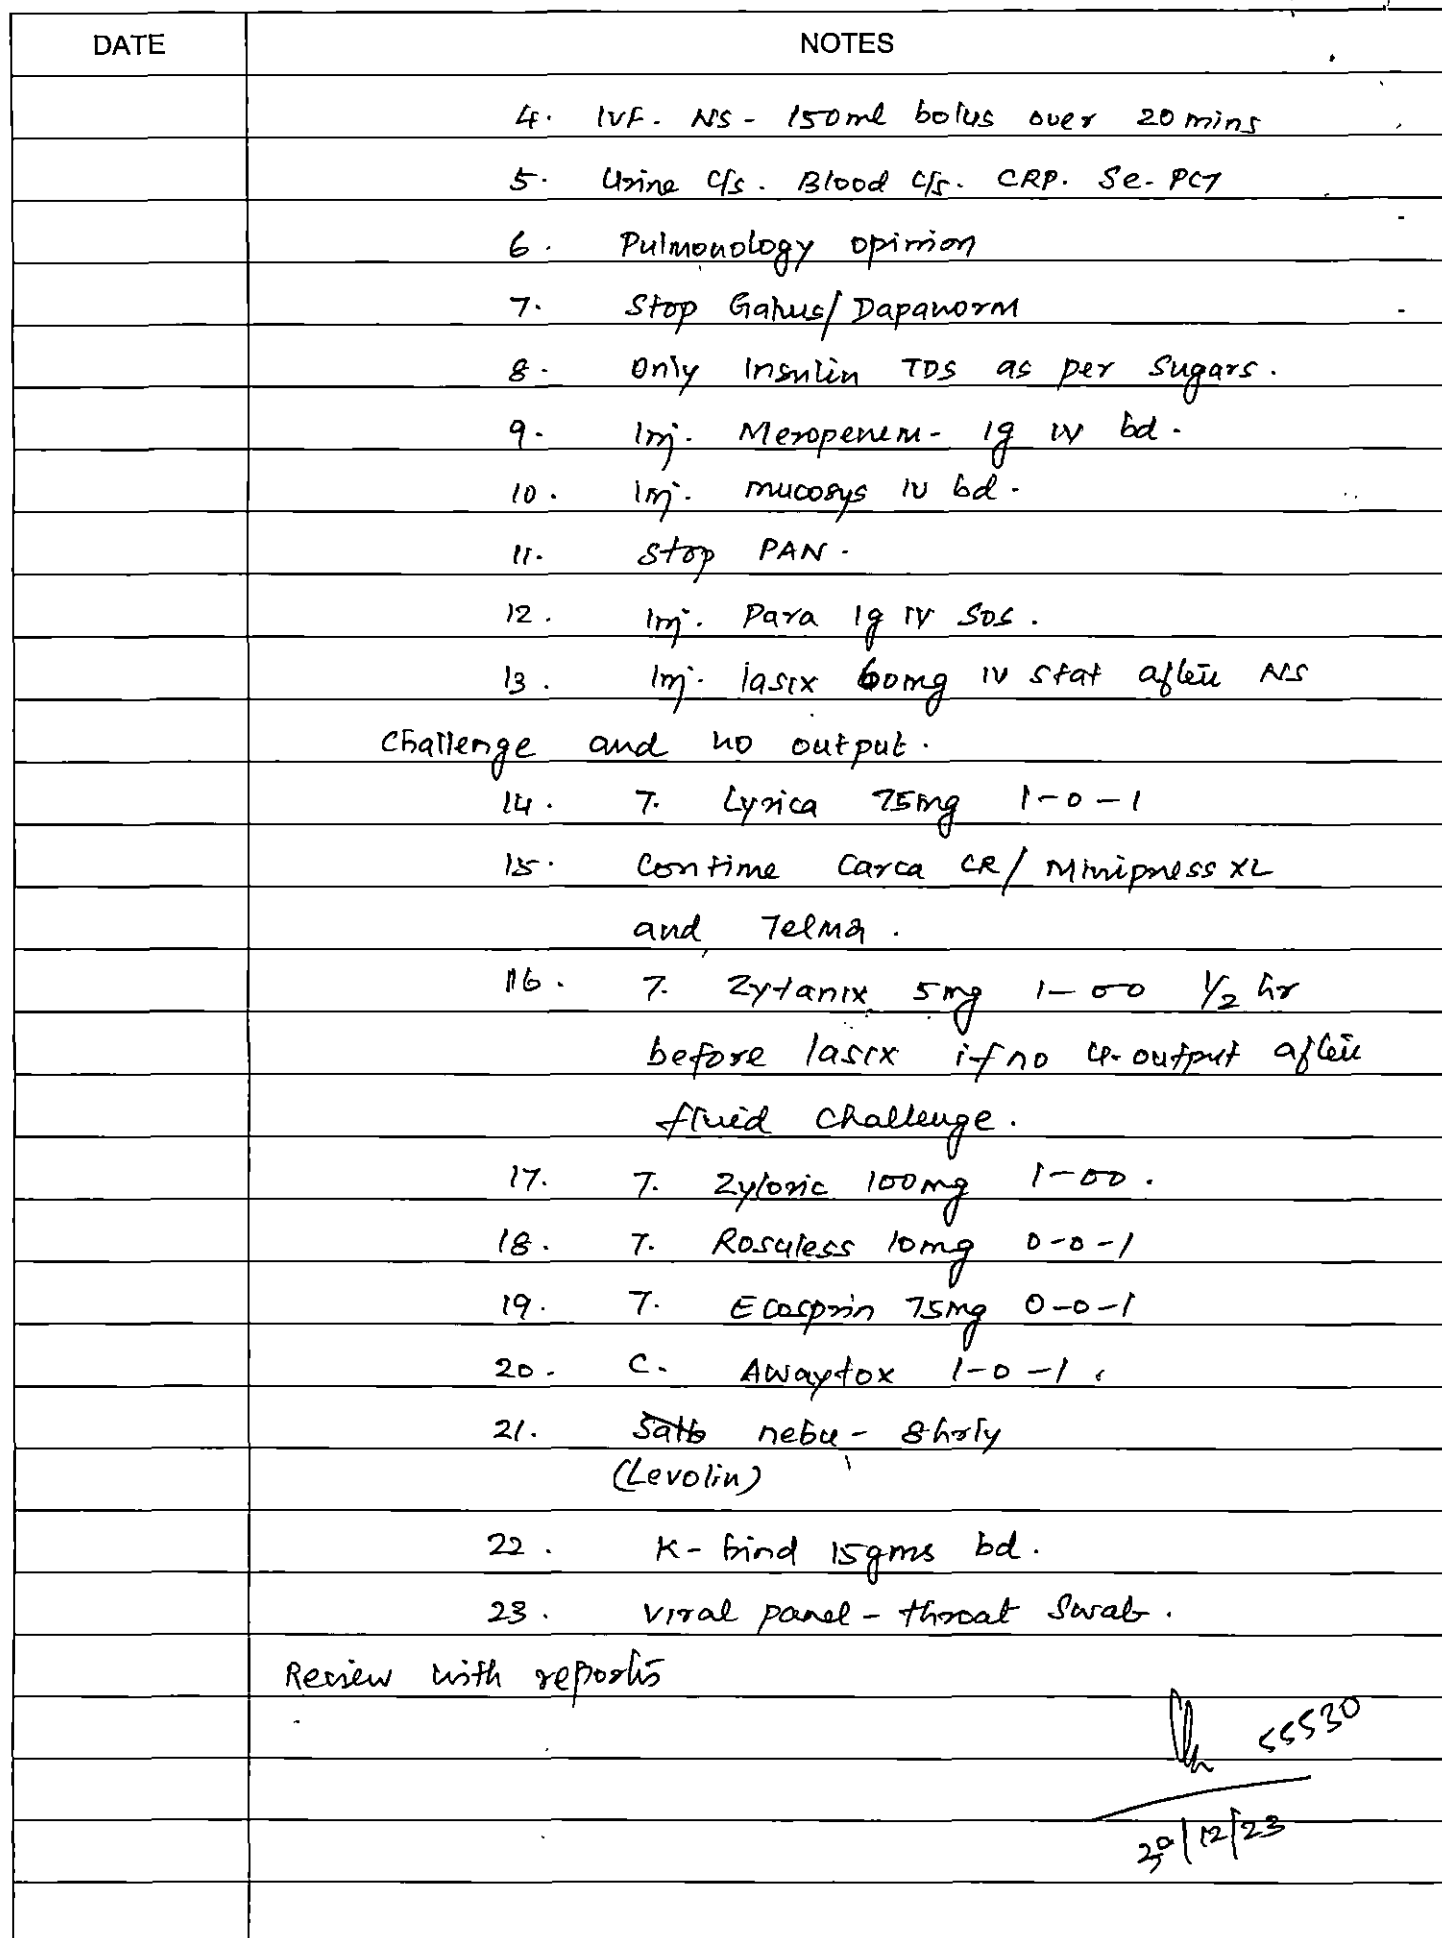 DATE NOTES
4. IVF. NS - 150ml bolus over 20 mins
5. Urine c/s. Blood c/s. CRP. Se. PCT
6. Pulmonology opinion
7. Stop Galvus/Dapanorm
8. Only Insulin TDS as per Sugars.
9. Inj. Meropenem - 1g IV bd.
10. Inj. mucosys IV bd.
11. Stop PAN.
12. Inj. Para 1g IV SOS.
13. Inj. lasix 60mg IV stat after NS
Challenge and no output.
14. T. Lyrica 75mg 1-0-1
15. Contime Carca CR/Minipress XL
and Telma.
16. T. Zytanix 5mg 1-00 1/2 hr
before lasix if no U-output after
fluid Challenge.
17. T. Zyloric 100mg 1-00.
18. T. Rosuless 10mg 0-0-1
19. T. Ecosprin 75mg 0-0-1
20. C. Awaytox 1-0-1.
21. nebu - 8hrly
(Levolin)
22. K-bind 15gms bd.
23. Viral panel - throat Swab.
Review with reports
55530
/12/23